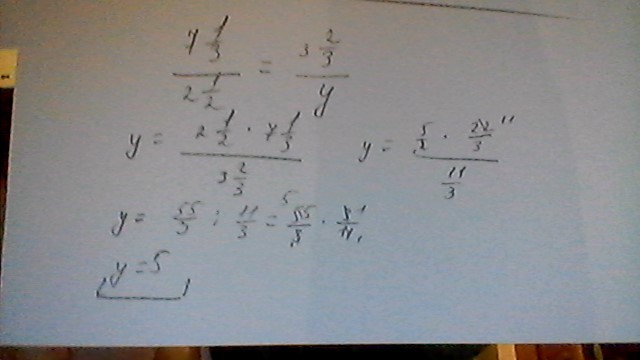 7 1/3 / 2 1/2 = 3 2/3 / y
y = 2 1/2 · 7 1/3 / 3 2/3 y = 5/2 · 22/3 11 / 11/3
y = 55/3 : 11/3 = 5 55/3 · 3/11 1 1
y = 5